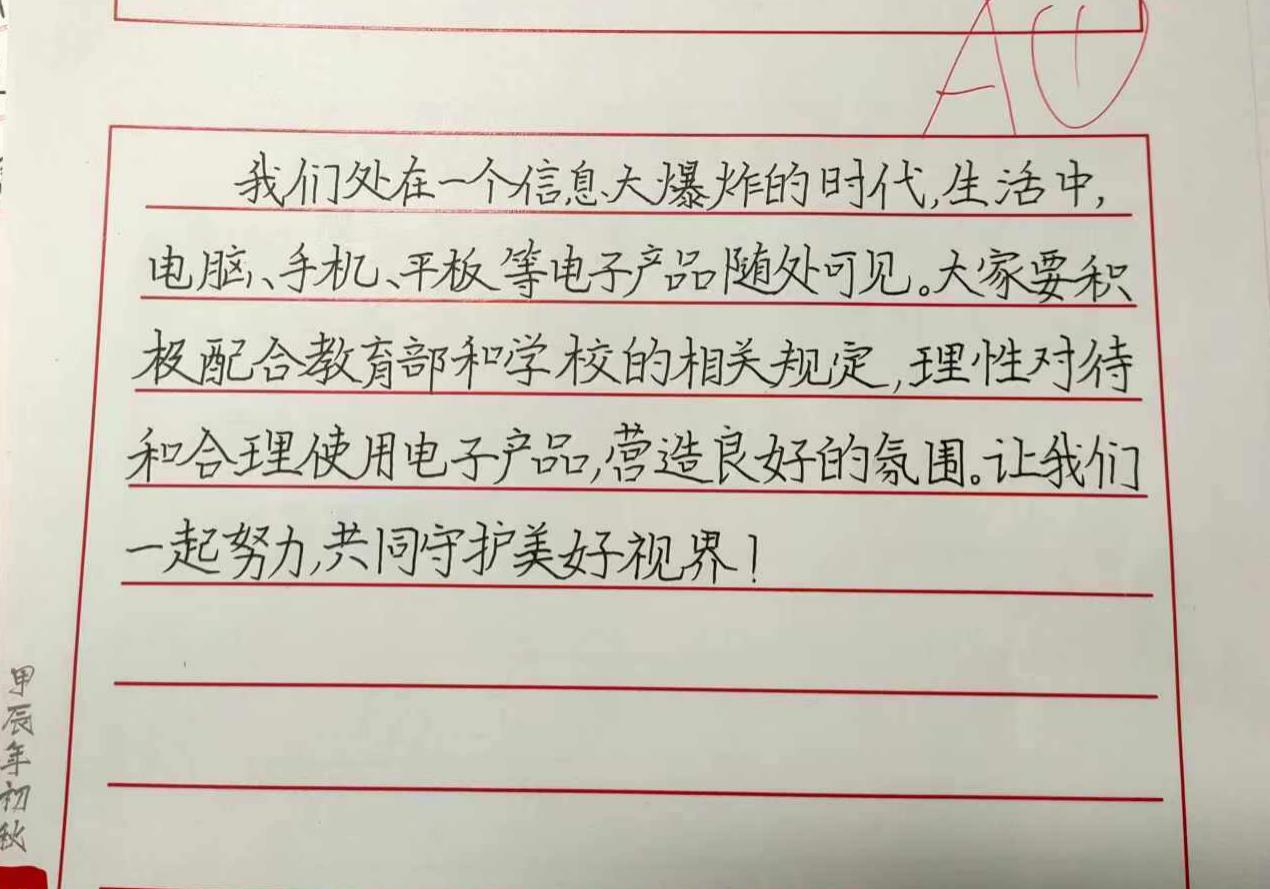 A①
我们处在一个信息大爆炸的时代,生活中,
电脑、手机、平板等电子产品随处可见。大家要积
极配合教育部和学校的相关规定,理性对待
和合理使用电子产品,营造良好的氛围。让我们
一起努力,共同守护美好视界！
甲辰年初秋